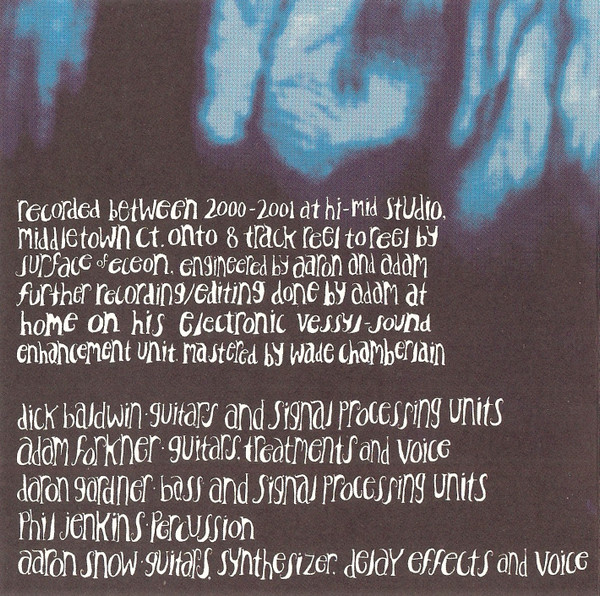 recorded between 2000-2001 at hi-mid studio,
middletown ct. onto 8 track reel to reel by
surface of eceon. engineered by aaron and adam
further recording/editing done by adam at
home on his electronic vessyl-sound
enhancement unit. mastered by wade chamberlain
dick baldwin·guitars and signal processing units
adam forkner·guitars, treatments and voice
daron gardner·bass and signal processing units
phil jenkins·percussion
aaron snow·guitars, synthesizer, delay effects and voice